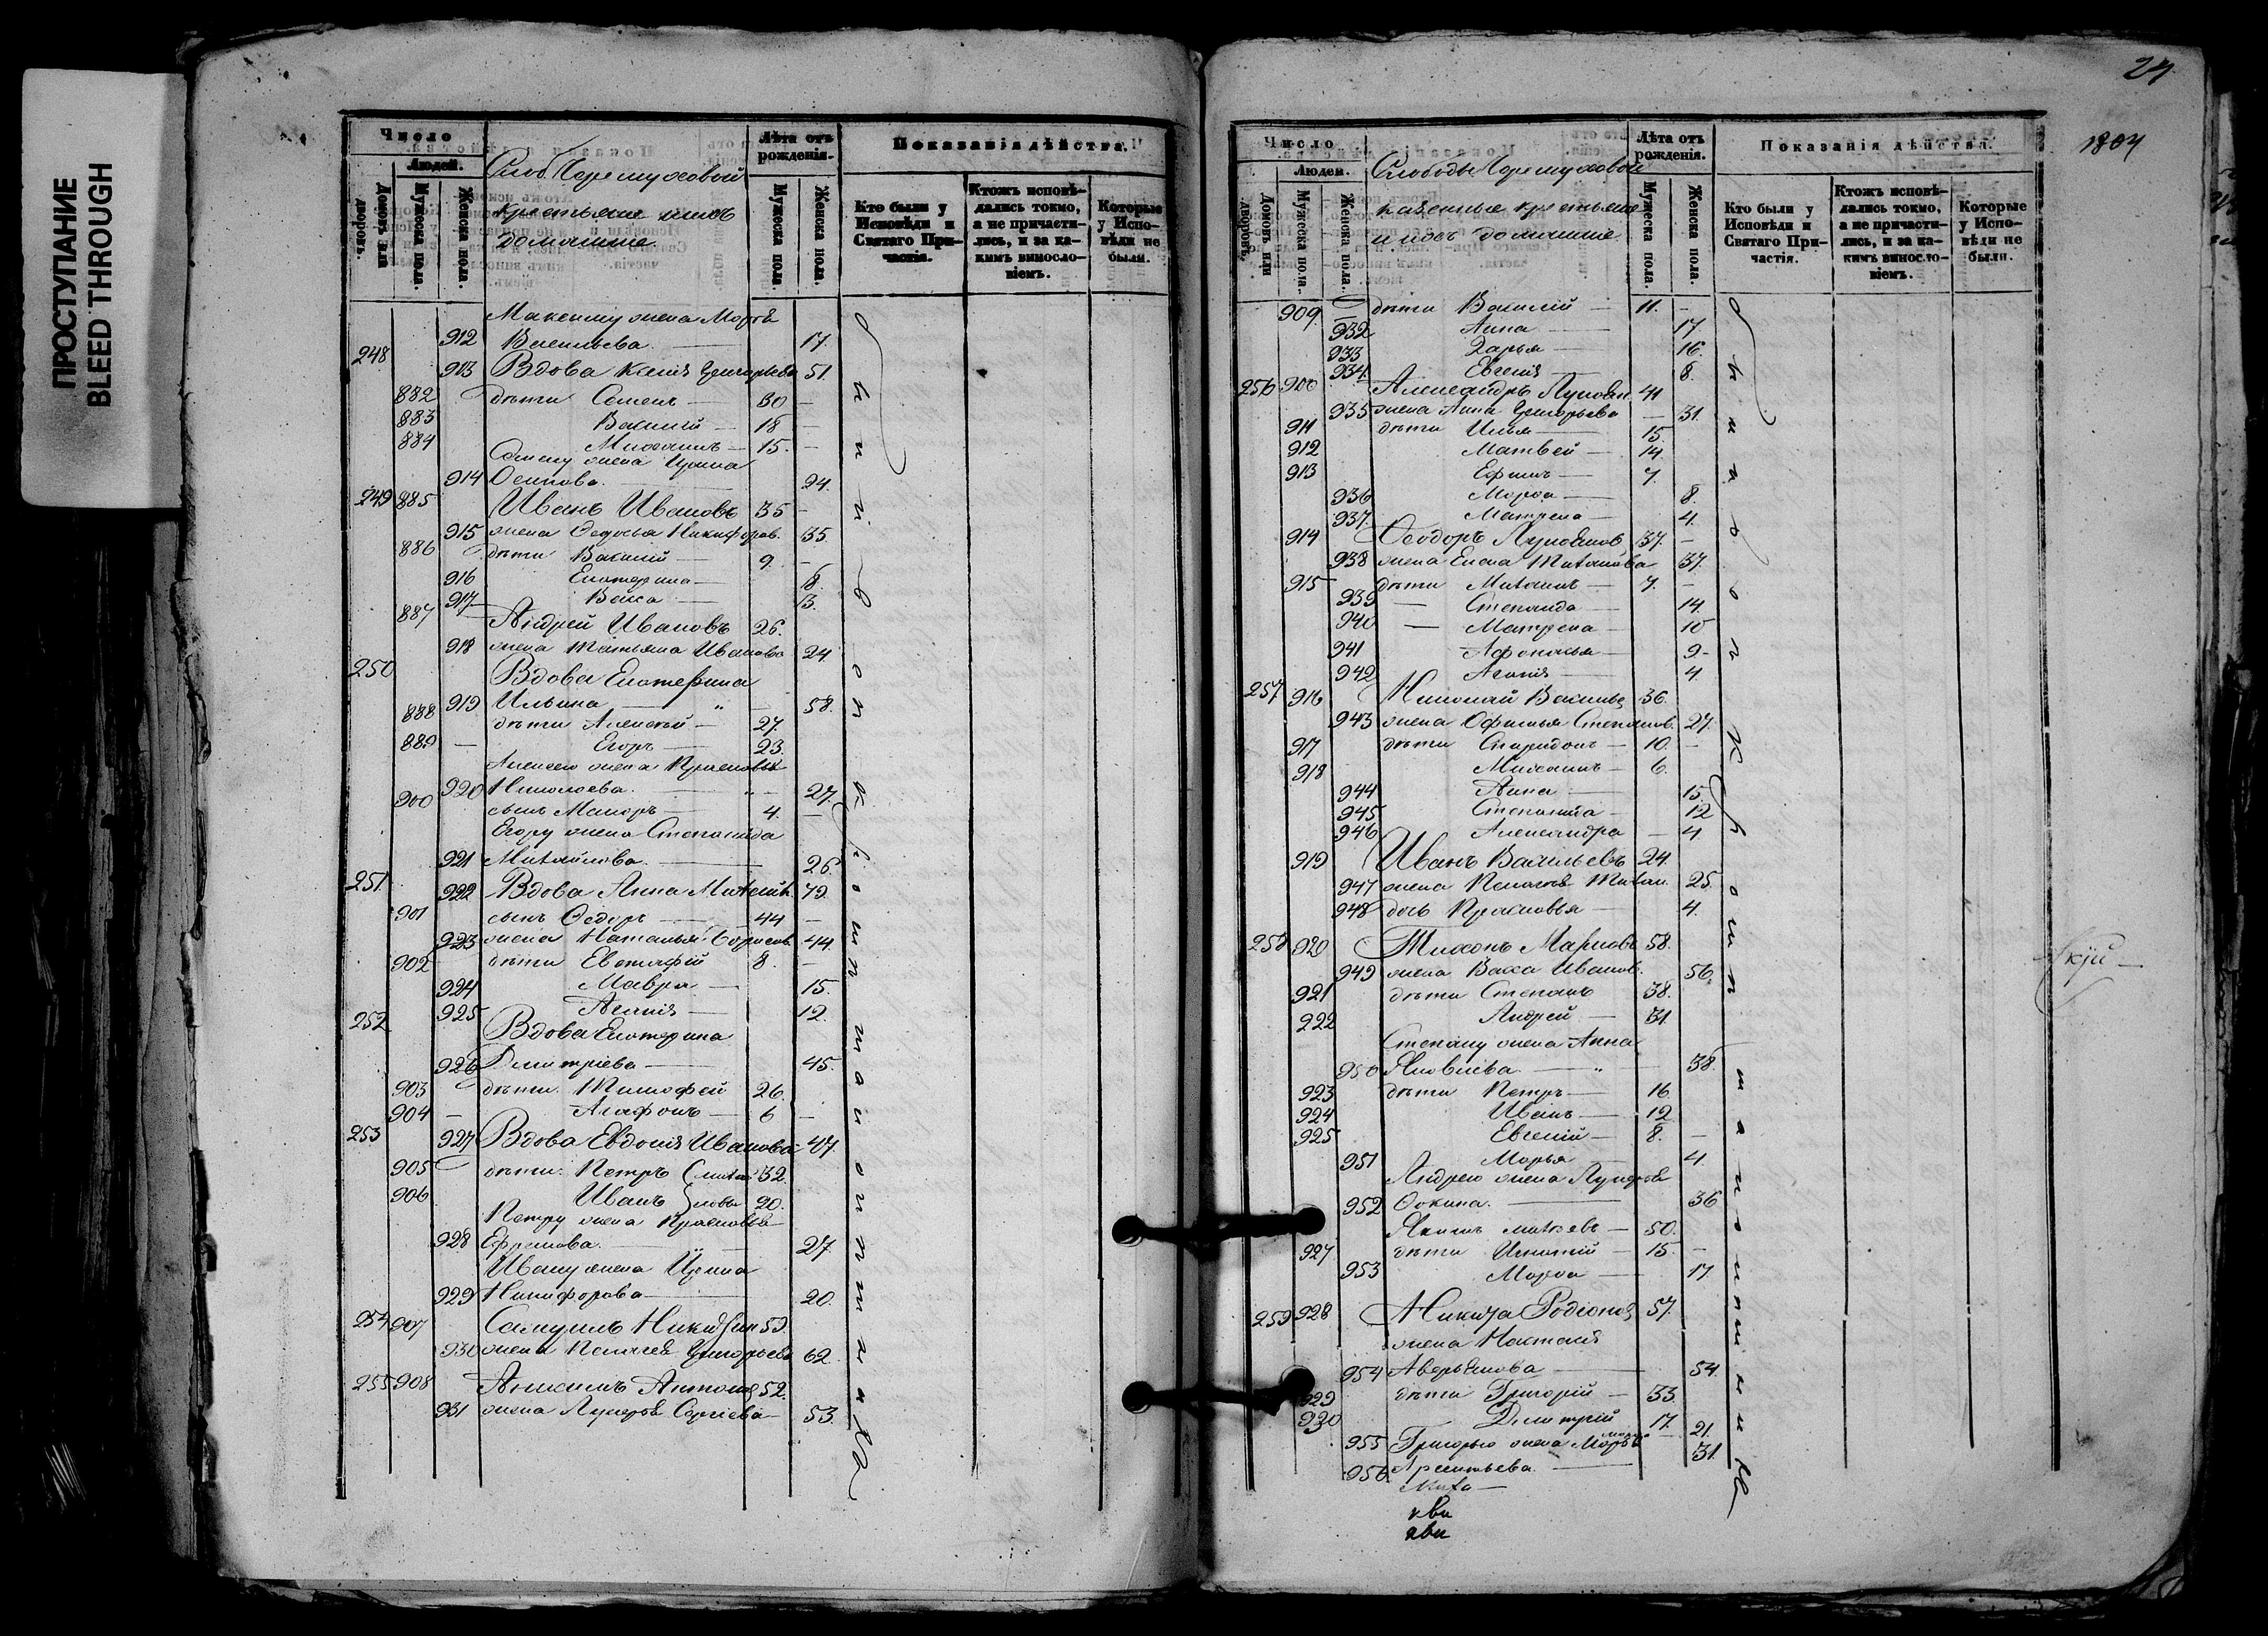 ПРОСТУПАНИЕ
BLEED THROUGH
Число
Людей.
Домовъ или дворовъ.
Мужеска пола.
Женска пола.
Слоб Черемуховой
крестьяне и ихъ
домашніе
Лѣта отъ рожденія.
Мужеска пола.
Женска пола.
Показанія дѣйства.
Кто были у Исповѣди и Святаго Причастія.
Ктожъ исповѣдались токмо, а не причастились, и за какимъ винословіемъ.
Которые у Исповѣди не были.
Максиму жена Марѳа
912 Васильева 17.
248 913 Вдова Ксенія Григорьева 51.
882 дѣти Семенъ 30 —
883 Василій 18 —
884 Михаилъ 15. —
Семену жена Ирина
914 Осипова 24.
249 885 Иванъ Ивановъ 35 —
915 жена Ѳедосья Никифоров. 35.
886 дѣти Василій 9. —
916 Екатерина 8.
917 Васса 3.
887 Андрей Ивановъ 26.
918 жена Татьяна Иванова 24
250 Вдова Екатерина
919 Ильина 58.
888 дѣти Алексѣй 27.
889 Егоръ 23.
Алексею жена Прасковья
920 Николаева 27.
900 сынъ Макаръ 4. —
Егору жена Степанида
921 Михайлова 26.
251 922 Вдова Анна 72.
901 сынъ Ѳедоръ 44 —
923 жена Наталья Борисов. 44
902 дѣти Евстафій 8. —
924 Мавра 15.
925 Агапія 12.
252 Вдова Екатерина
926 Дмитріева 45.
903 дѣти Тимофей 26.
904 Агафонъ 6 —
253 927 Вдова Евдокія Иванова 47.
905 дѣти Петръ 32.
906 Иванъ 20.
Петру жена Прасковья
928 Ефремова 27
Ивану жена Ирина
929 Никифорова 20.
254 907 Самуилъ Никитин 59.
930 жена Пелагея Григорьева 62
255 908 Антонов 52.
931 жена Лукерья Сергіева 53.
24
1804
Число
Людей.
Домовъ или дворовъ.
Мужеска пола.
Женска пола.
Слободы Черемуховой
казенные крестьяне
и ихъ домашніе
Лѣта отъ рожденія.
Мужеска пола.
Женска пола.
Показанія дѣйства.
Кто были у Исповѣди и Святаго Причастія.
Ктожъ исповѣдались токмо, а не причастились, и за какимъ винословіемъ.
Которые у Исповѣди не были.
909 дѣти Василій 11. —
932 Анна 17.
933 Дарья 16.
934 Евгенія 8.
256 900 Александръ Лукоян 41
935 жена Анна Григорьева — 31.
911 дѣти Илья 15.
912 Матвей 14.
913 Ефимъ 7.
936 Марѳа 8.
937. Матрена 4.
914 Ѳеодоръ Лукояновъ 37. —
938 жена Елена Михайлова 37.
915 дѣти Михаилъ 7. —
939 Степанида 14.
940 Матрена 10
941 Афонасья 9-
942 Агапія 4
257 916 Николай Василье 36.
943 жена Офимья Степанов. 27.
917 дѣти Спиридонъ 10. —
918 Михаилъ 6.
944 Анна 15
945 Степанида 12
946 Александра — 4
919 Иванъ Васильевъ 24.
947 жена Пелагея Михаи. 25.
948 дочь Прасковья 4.
258 920 Тихонъ Марковъ 58.
949 жена Васса Иванов. 56.
921 дѣти Степанъ 38.
222 Андрей 31.
Степану жена Анна
950 Яковлева 38.
923 дѣти Петръ 16
924 Иванъ 12
925 Евгеній 8. —
951 Марья 4.
Андрею жена Лукерья
952 Ѳокина 36
Якимъ 50.
927 дѣти Игнатій 15. —
953 Марѳа 17.
259 928 Никита Родіонов 57.
жена Настасія
954 Аверьянова 54.
929 дѣти Григорій 33.
930 Дмитрій 17.
955 Григорью жена Марѳа 21.
956 Арсентьева 31.